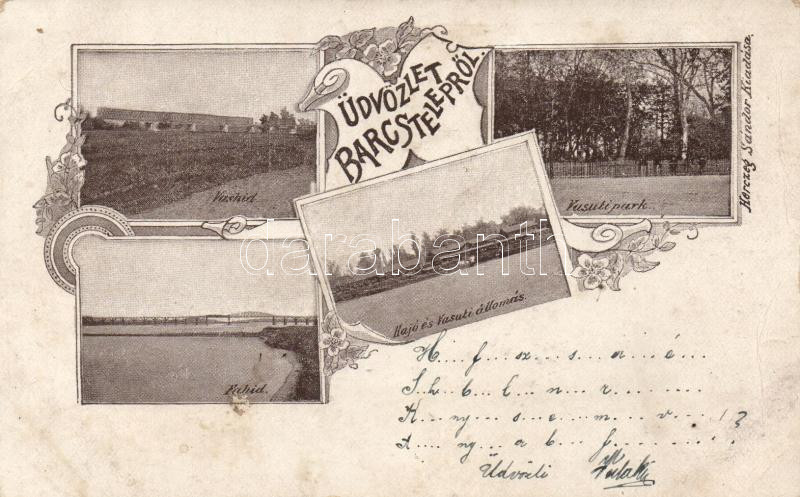 ÜDVÖZLET
BARCSTELEPRŐL.
Vashid.
Vasuti park.
Herczeg Sándor Kiadása.
darabanth
Hajó és Vasuti állomás.
Fahid.
H... f... sz... s... a... é...
S... h... b... l... n... r...
K... ny... s... e... m... v... !?
A... ny... a... b... f...
Üdvözli